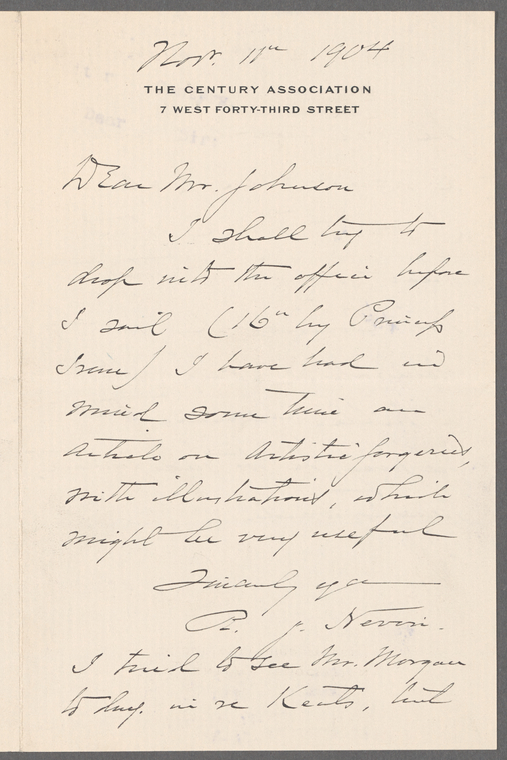 Nov. 11th 1904
THE CENTURY ASSOCIATION
7 WEST FORTY-THIRD STREET
Dear Mr. Johnson
I shall try to
drop into the office before
I sail (16th by Princess
Irene) I have had in
mind some time an
article on Artistic forgeries,
with illustrations, which
might be very useful
Sincerely yrs
R. J. Nevin.
I tried to see Mr. Morgan
to day. in re Keats, but